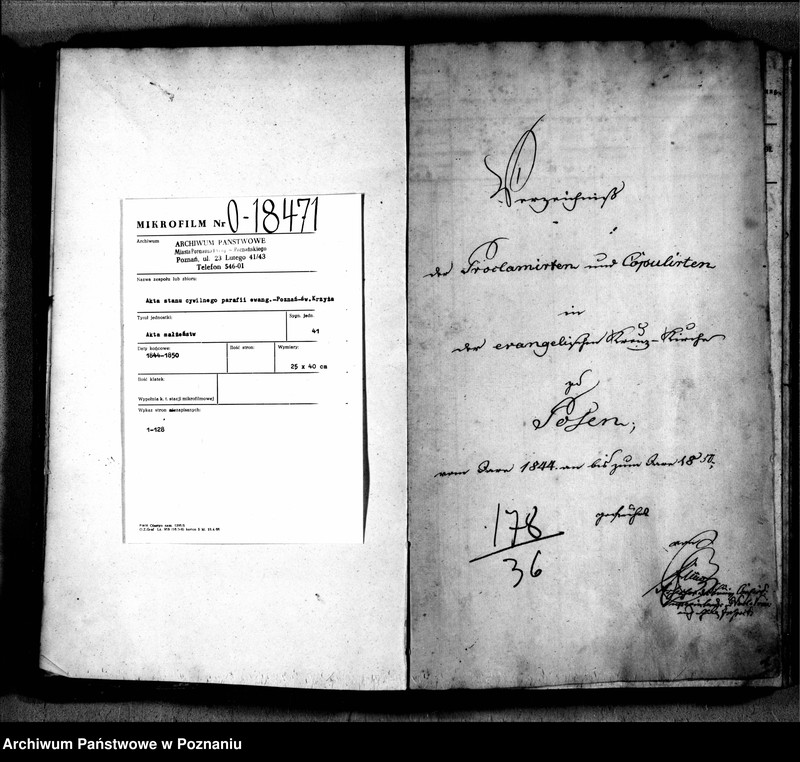 MIKROFILM Nr O-18471
Archiwum
ARCHIWUM PAŃSTWOWE
Miasta Poznania
Poznań, ul. 23 Lutego 41/43
Telefon 546-01
Nazwa zespołu lub zbioru:
Akta stanu cywilnego parafii ewang.-Poznań-św.Krzyża
Tytuł jednostki:
Sygn. jedn.
Akta małżeństw
41
Daty końcowe:
Ilość stron:
Wymiary:
1844-1850
25 x 40 cm
Ilość klatek:
Wypełnia k. t. stacji mikrofilmowej
Wykaz stron niezapisanych:
1-128
Verzeichniß
der Proclamirten und Copulirten
in
der evangelischen Kreuz-Kirche
zu
Posen,
vom Jare 1844. an bis zum Jare 1850.
178
36
Archiwum Państwowe w Poznaniu